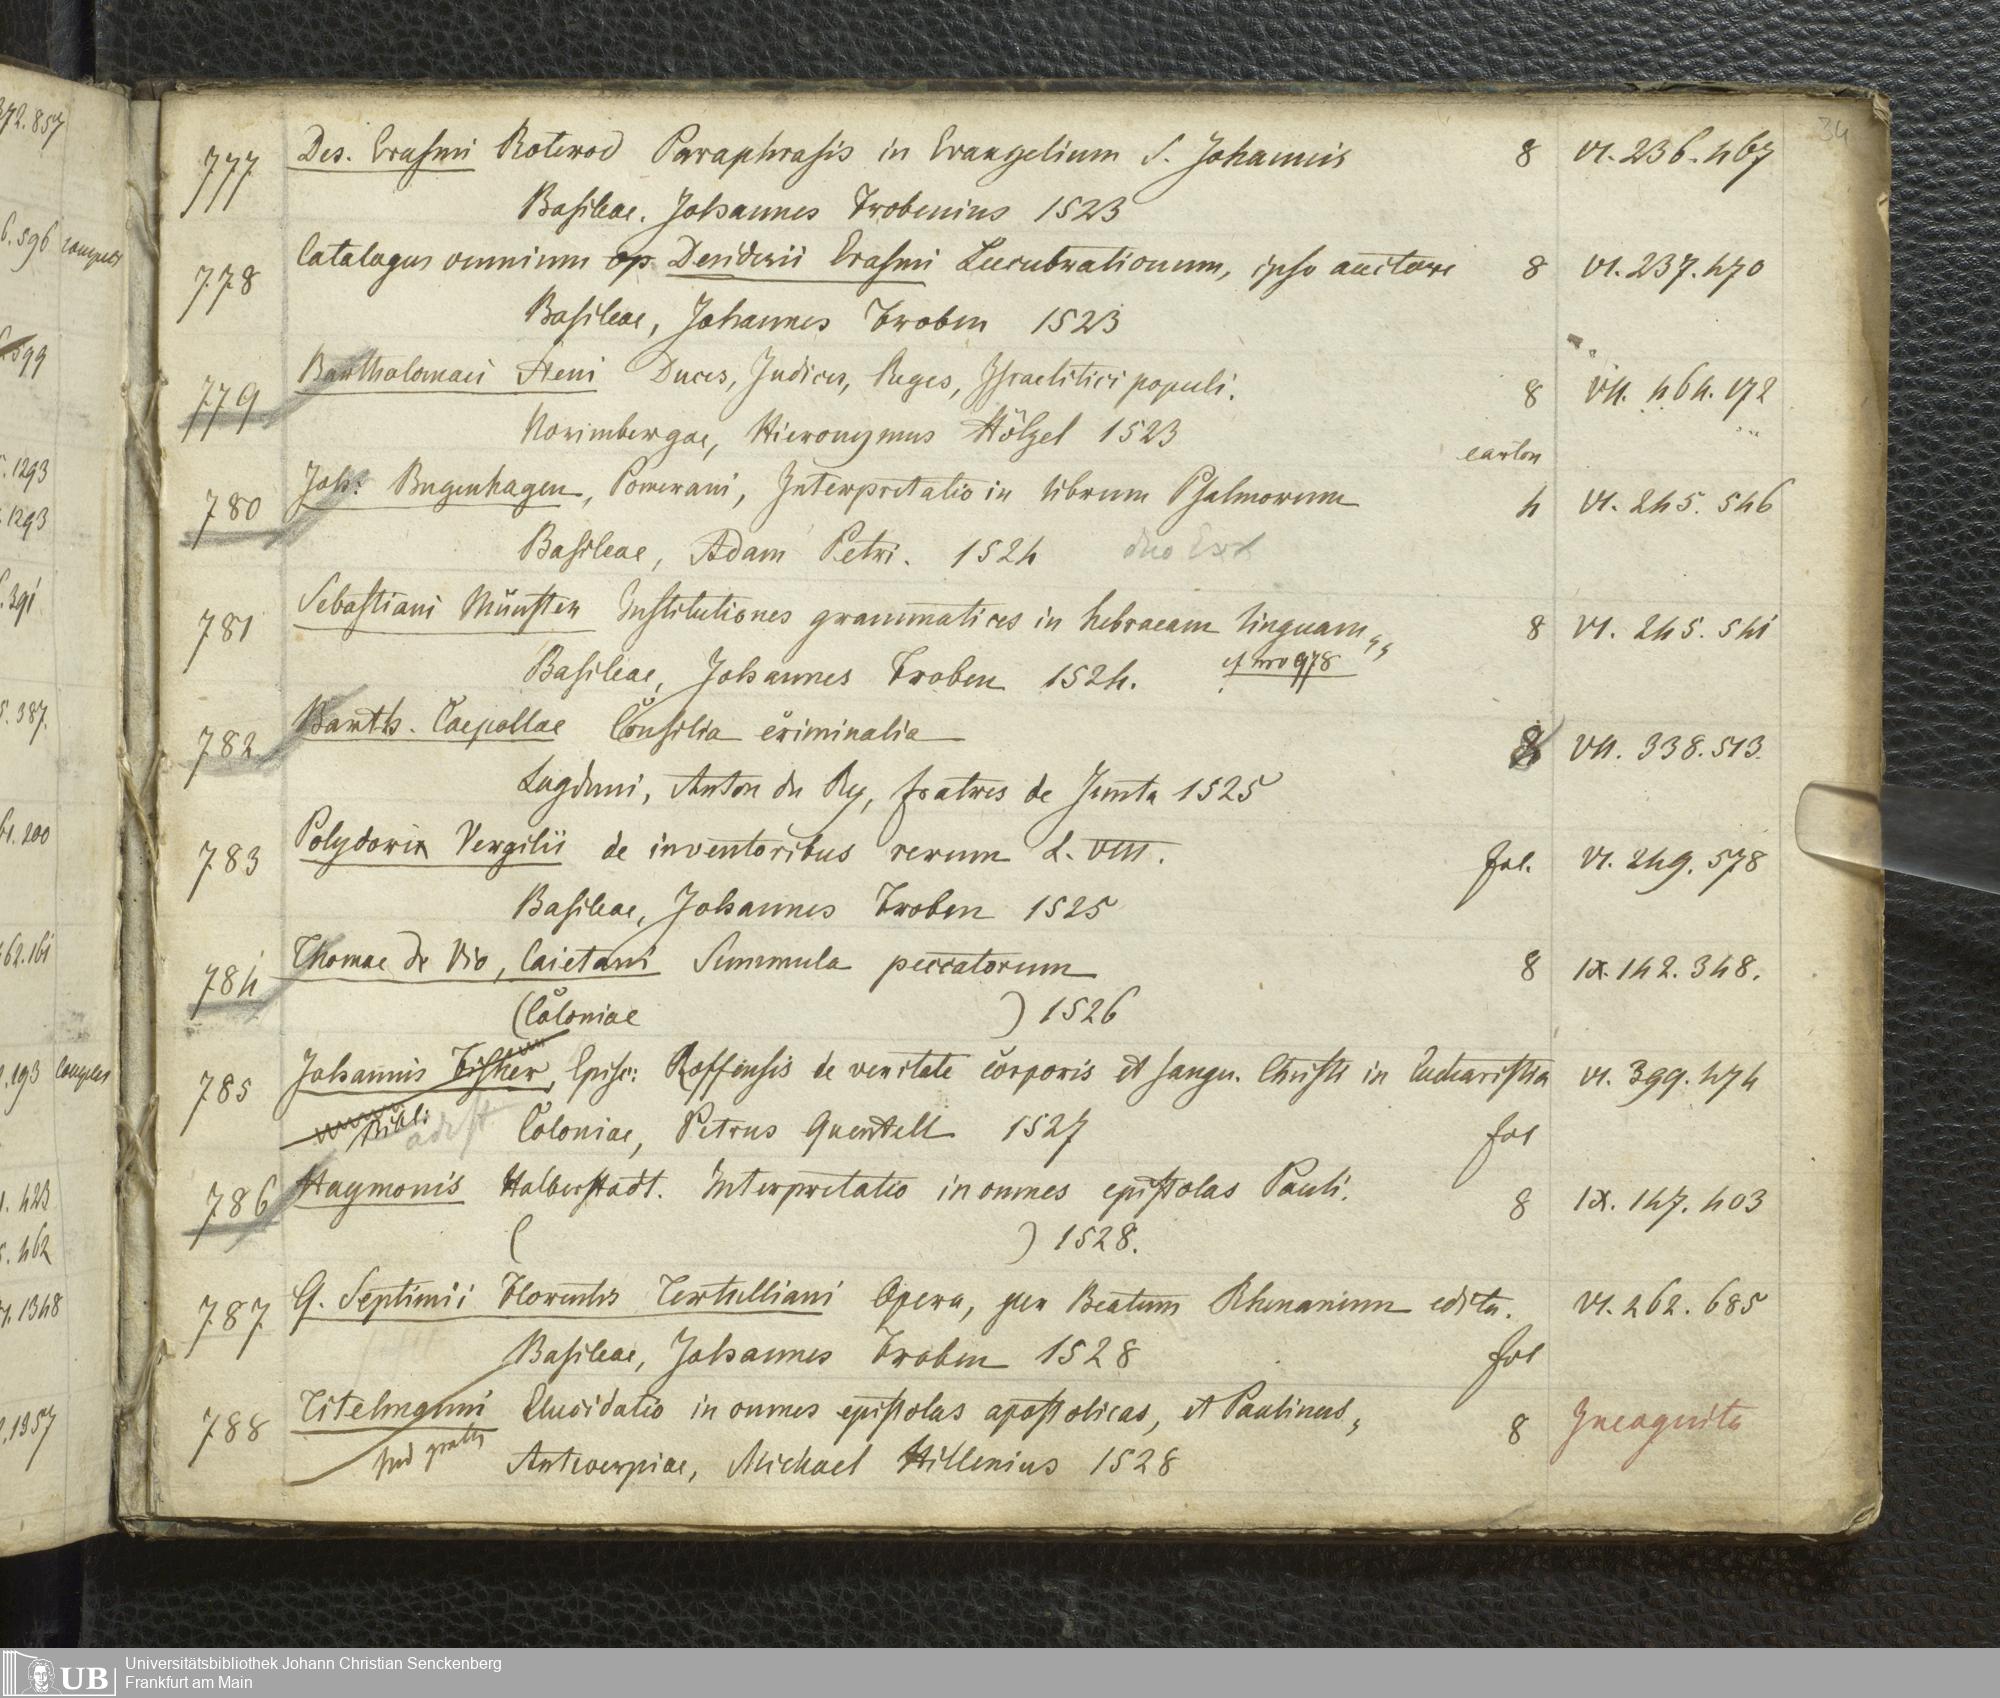 34
777 Des. Erasmi Roterod Paraphrasis in Evangelium S. Johannis 8 VI. 236. 467
Basileae. Johannes Frobenius 1523
778 Catalogus omnium op Desiderii Erasmi Lucubrationum, ipso auctore 8 VI. 237. 470
Basileae, Johannes Froben 1523
779 Bartholomaei Steni Duces, Judices, Reges, Israelitici populi. 8 VII. 464. 172
Norimbergae, Hieronymus Hölzel 1523
carton
780 Joh: Bugenhagen, Pomerani, Interpretatio in librum Psalmorum 4 VI. 245. 546
Basileae, Adam Petri. 1524 duo Ex
781 Sebastiani Münster Institutiones grammatices in hebraeam linguam 8 VI. 245. 541
Basileae, Johannes Froben 1524. cf nro 978
782 Barth. Caepollae Consilia criminalia 8 VII. 338. 513.
Lugduni, Anton du Ry, fratres de Junta 1525
783 Polydori Vergilii de inventoribus rerum L. VIII. fol. VI. 249. 578
Basileae, Johannes Froben 1525
784 Thomae de Vio, Caietani Summula peccatorum 8 IX. 142. 348.
(Coloniae ) 1526
785 Johannis Fisher, Episc: Roffensis de veritate corporis et sangu. Christi in Eucharistia VI. 399. 474
adest Coloniae, Petrus Quentell 1527 fol
786 Haymonis Halberstadt. Interpretatio in omnes epistolas Pauli. 8 IX. 147. 403
( ) 1528.
787 Q. Septimii Florentis Tertulliani Opera, per Beatum Rhenanum edita. VI. 262. 685
Basileae, Johannes Froben 1528 fol
788 Titelmanni Elucidatio in omnes epistolas apostolicas, et Paulinas, 8 Incognita
Antwerpiae, Michael Hillenius 1528
372.857
6.596 complet
599
1293
1293
391
5.387.
61.200
462.161
193 complet
1. 423
5. 462
1348
1357
UB Universitätsbibliothek Johann Christian Senckenberg
Frankfurt am Main